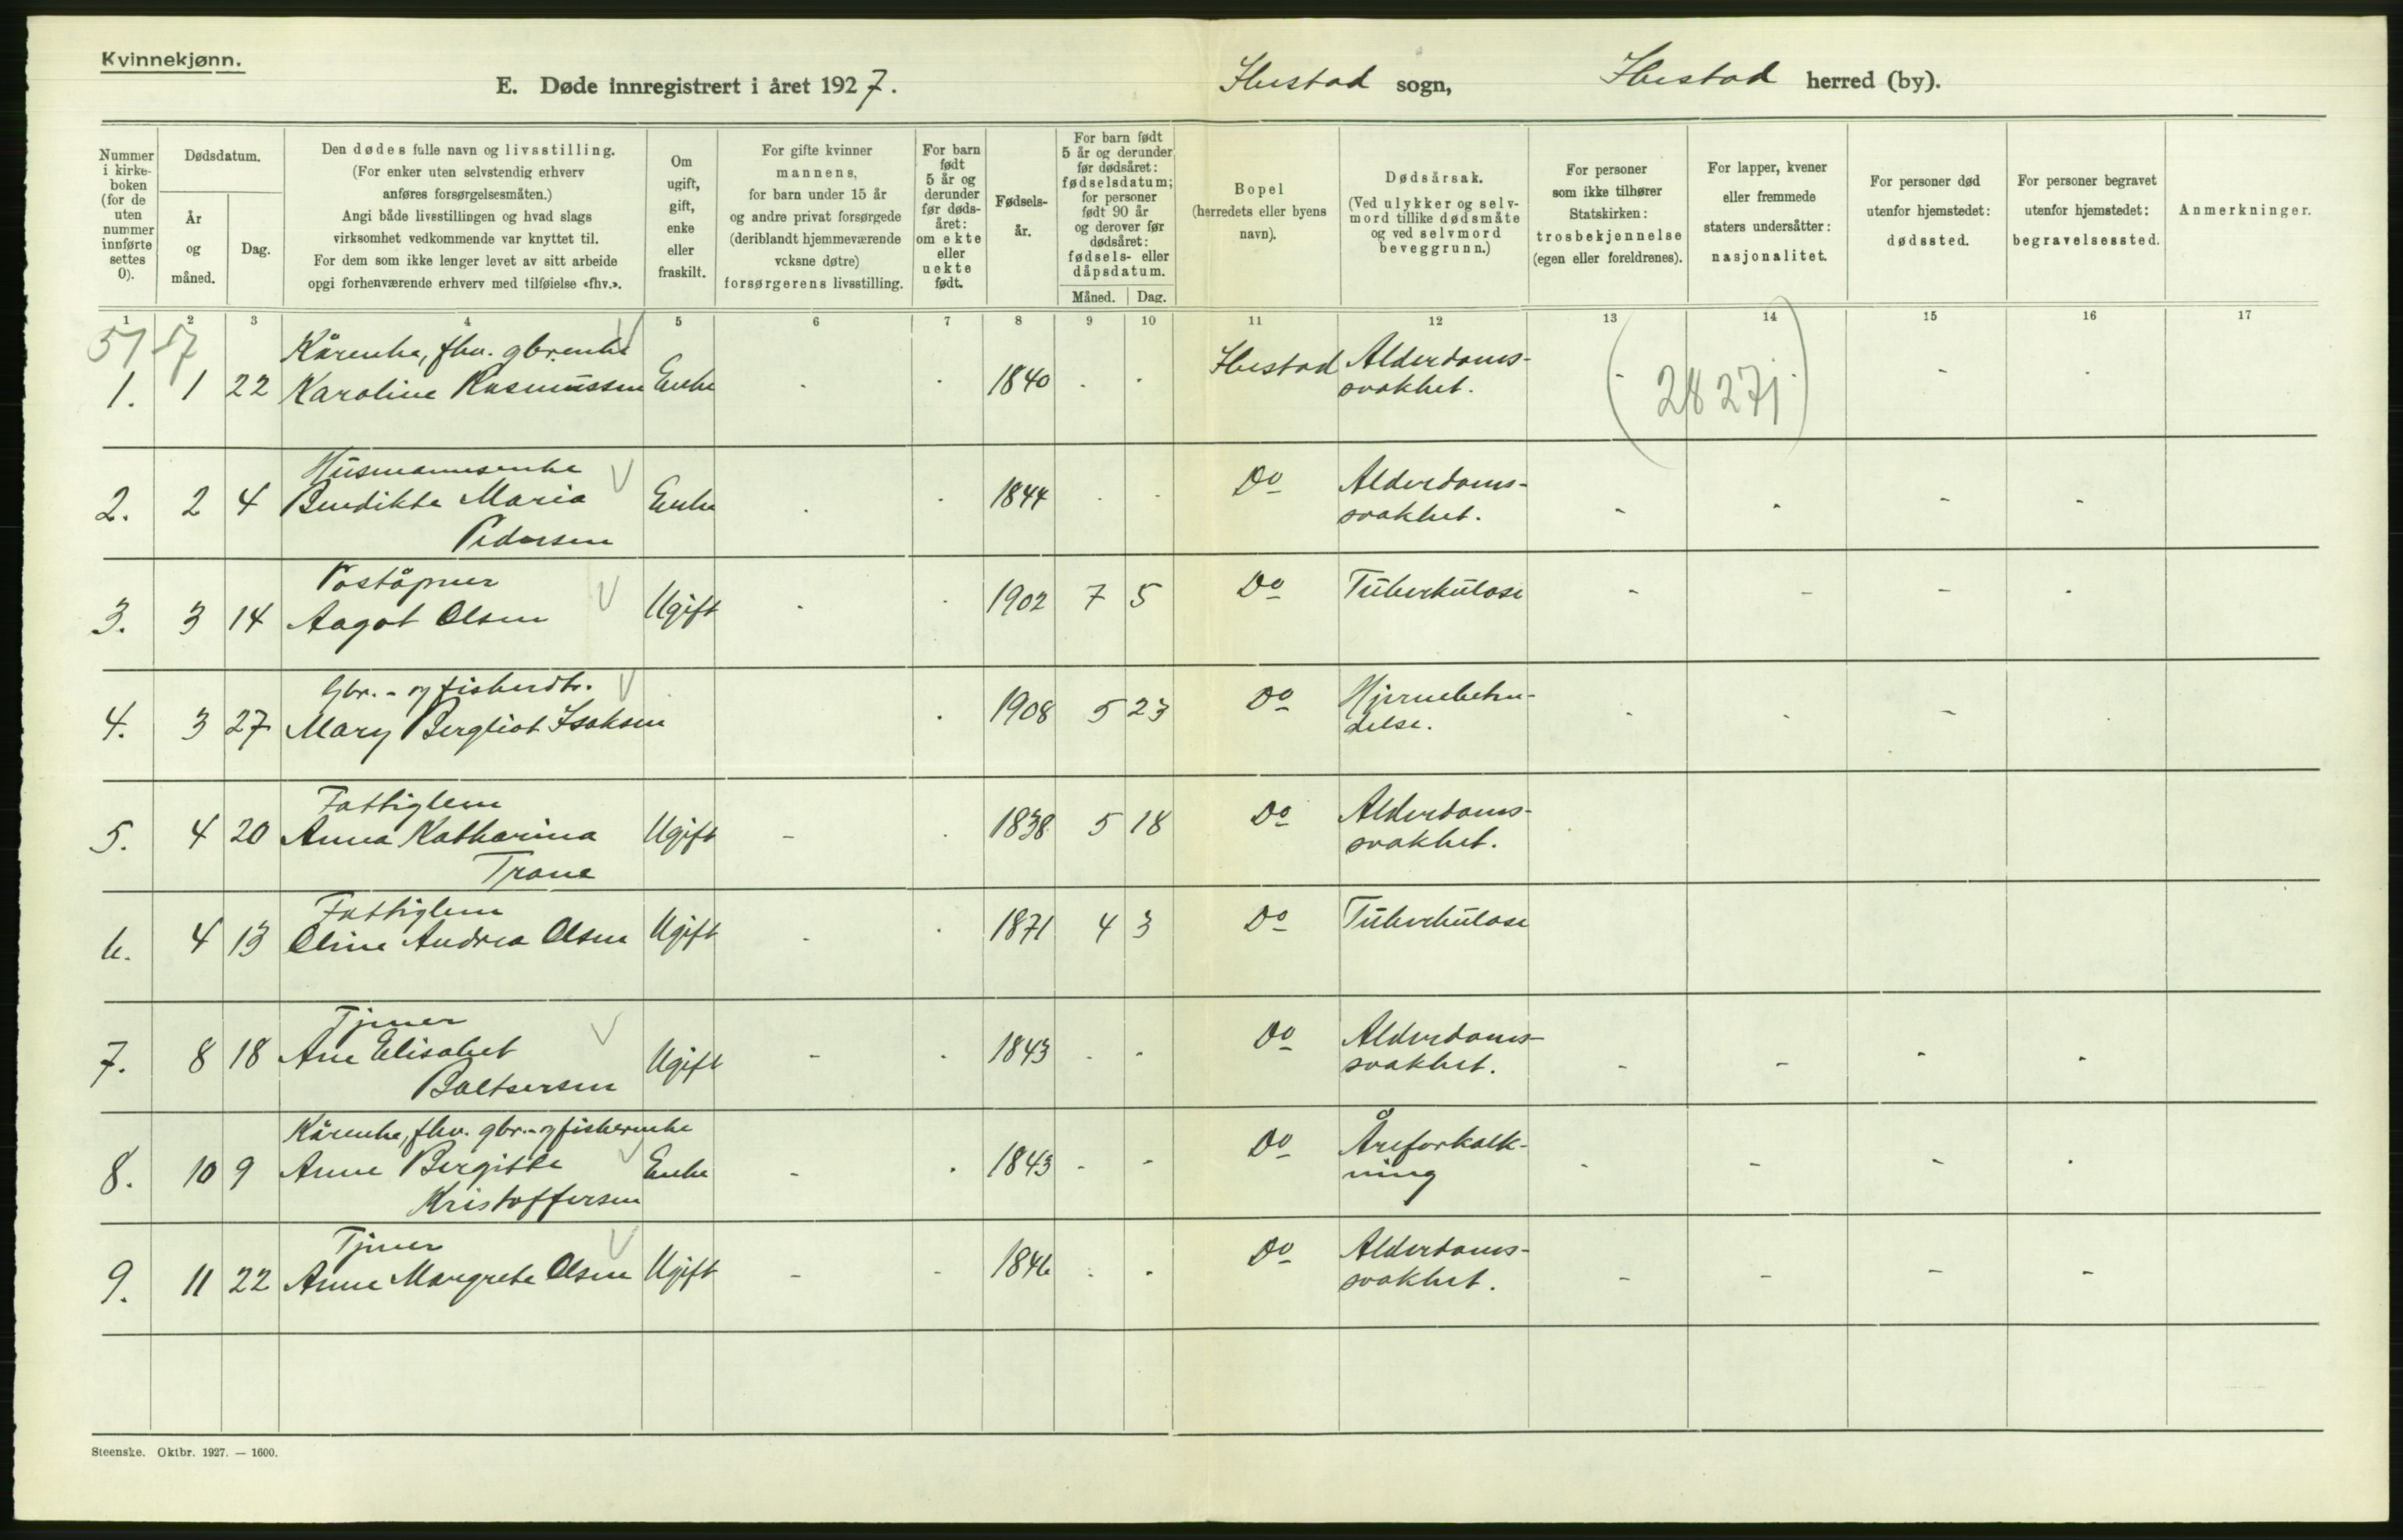 Kvinnekjønn.
E. Døde innregistrert i året 1927. Hustad sogn, Hustad herred (by).
Nummer i kirkeboken (for de uten nummer innførte settes 0).
Dødsdatum.
År og måned.
Dag.
Den dødes fulle navn og livsstilling.
(For enker uten selvstendig erhverv
anføres forsørgelsesmåten.)
Angi både livsstillingen og hvad slags
virksomhet vedkommende var knyttet til.
For dem som ikke lenger levet av sitt arbeide
opgi forhenværende erhverv med tilføielse «fhv.».
Om
ugift,
gift,
enke
eller
fraskilt.
For gifte kvinner
mannens,
for barn under 15 år
og andre privat forsørgede
(deriblandt hjemmeværende
voksne døtre)
forsørgerens livsstilling.
For barn
født
5 år og
derunder
før døds-
året:
om ekte
eller
uekte
født.
Fødsels-
år.
For barn født
5 år og derunder
før dødsåret:
fødselsdatum;
for personer
født 90 år
og derover før
dødsåret:
fødsels- eller
dåpsdatum.
Måned. Dag.
Bopel
(herredets eller byens
navn).
Dødsårsak.
(Ved ulykker og selv-
mord tillike dødsmåte
og ved selvmord
beveggrunn.)
For personer
som ikke tilhører
Statskirken:
trosbekjennelse
(egen eller foreldrenes).
For lapper, kvener
eller fremmede
staters undersåtter:
nasjonalitet.
For personer død
utenfor hjemstedet:
dødssted.
For personer begravet
utenfor hjemstedet:
begravelsessted.
Anmerkninger.
1 2 3 4 5 6 7 8 9 10 11 12 13 14 15 16 17
Kårenke, fhv. gbr.enke
1. 1 22 Karoline Rasmussen Enke - - 1840 - - Hustad Alderdoms-
svakhet. - (28271) - - -
Husmannsenke
2. 2 4 Bendikte Maria Enke - - 1844 - - Do Alderdoms-
Pedersen svakhet. - - - -
Poståpner
3. 3 14 Aagot Olsen Ugift - - 1902 7 5 Do Tuberkulose - - - -
Gbr.- og fiskerdtr.
4. 3 27 Mary Bergliot Isaksen - 1908 5 23 Do Hjernebeten-
delse. - - - -
Fattiglem
5. 4 20 Anna Katharina Ugift - - 1838 5 18 Do Alderdoms-
Trane svakhet.
Fattiglem
6. 4 13 Oline Andrea Olsen Ugift - - 1871 4 3 Do Tuberkulose
Tjener
7. 8 18 Ane Elisabet Ugift - - 1843 - - Do Alderdoms-
Baltsersen svakhet. - - - -
Kårenke, fhv. gbr.- og fiskerenke
8. 10 9 Anne Bergitte Enke - - 1843 - - Do Åreforkalk-
Kristoffersen ning - - - -
Tjener
9. 11 22 Anne Margrete Olsen Ugift - - 1846 - - Do Alderdoms-
svakhet. - - - -
Steenske. Oktbr. 1927. — 1600.